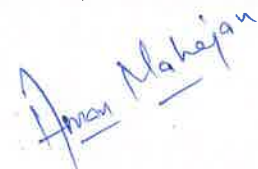 Aman Mahajan